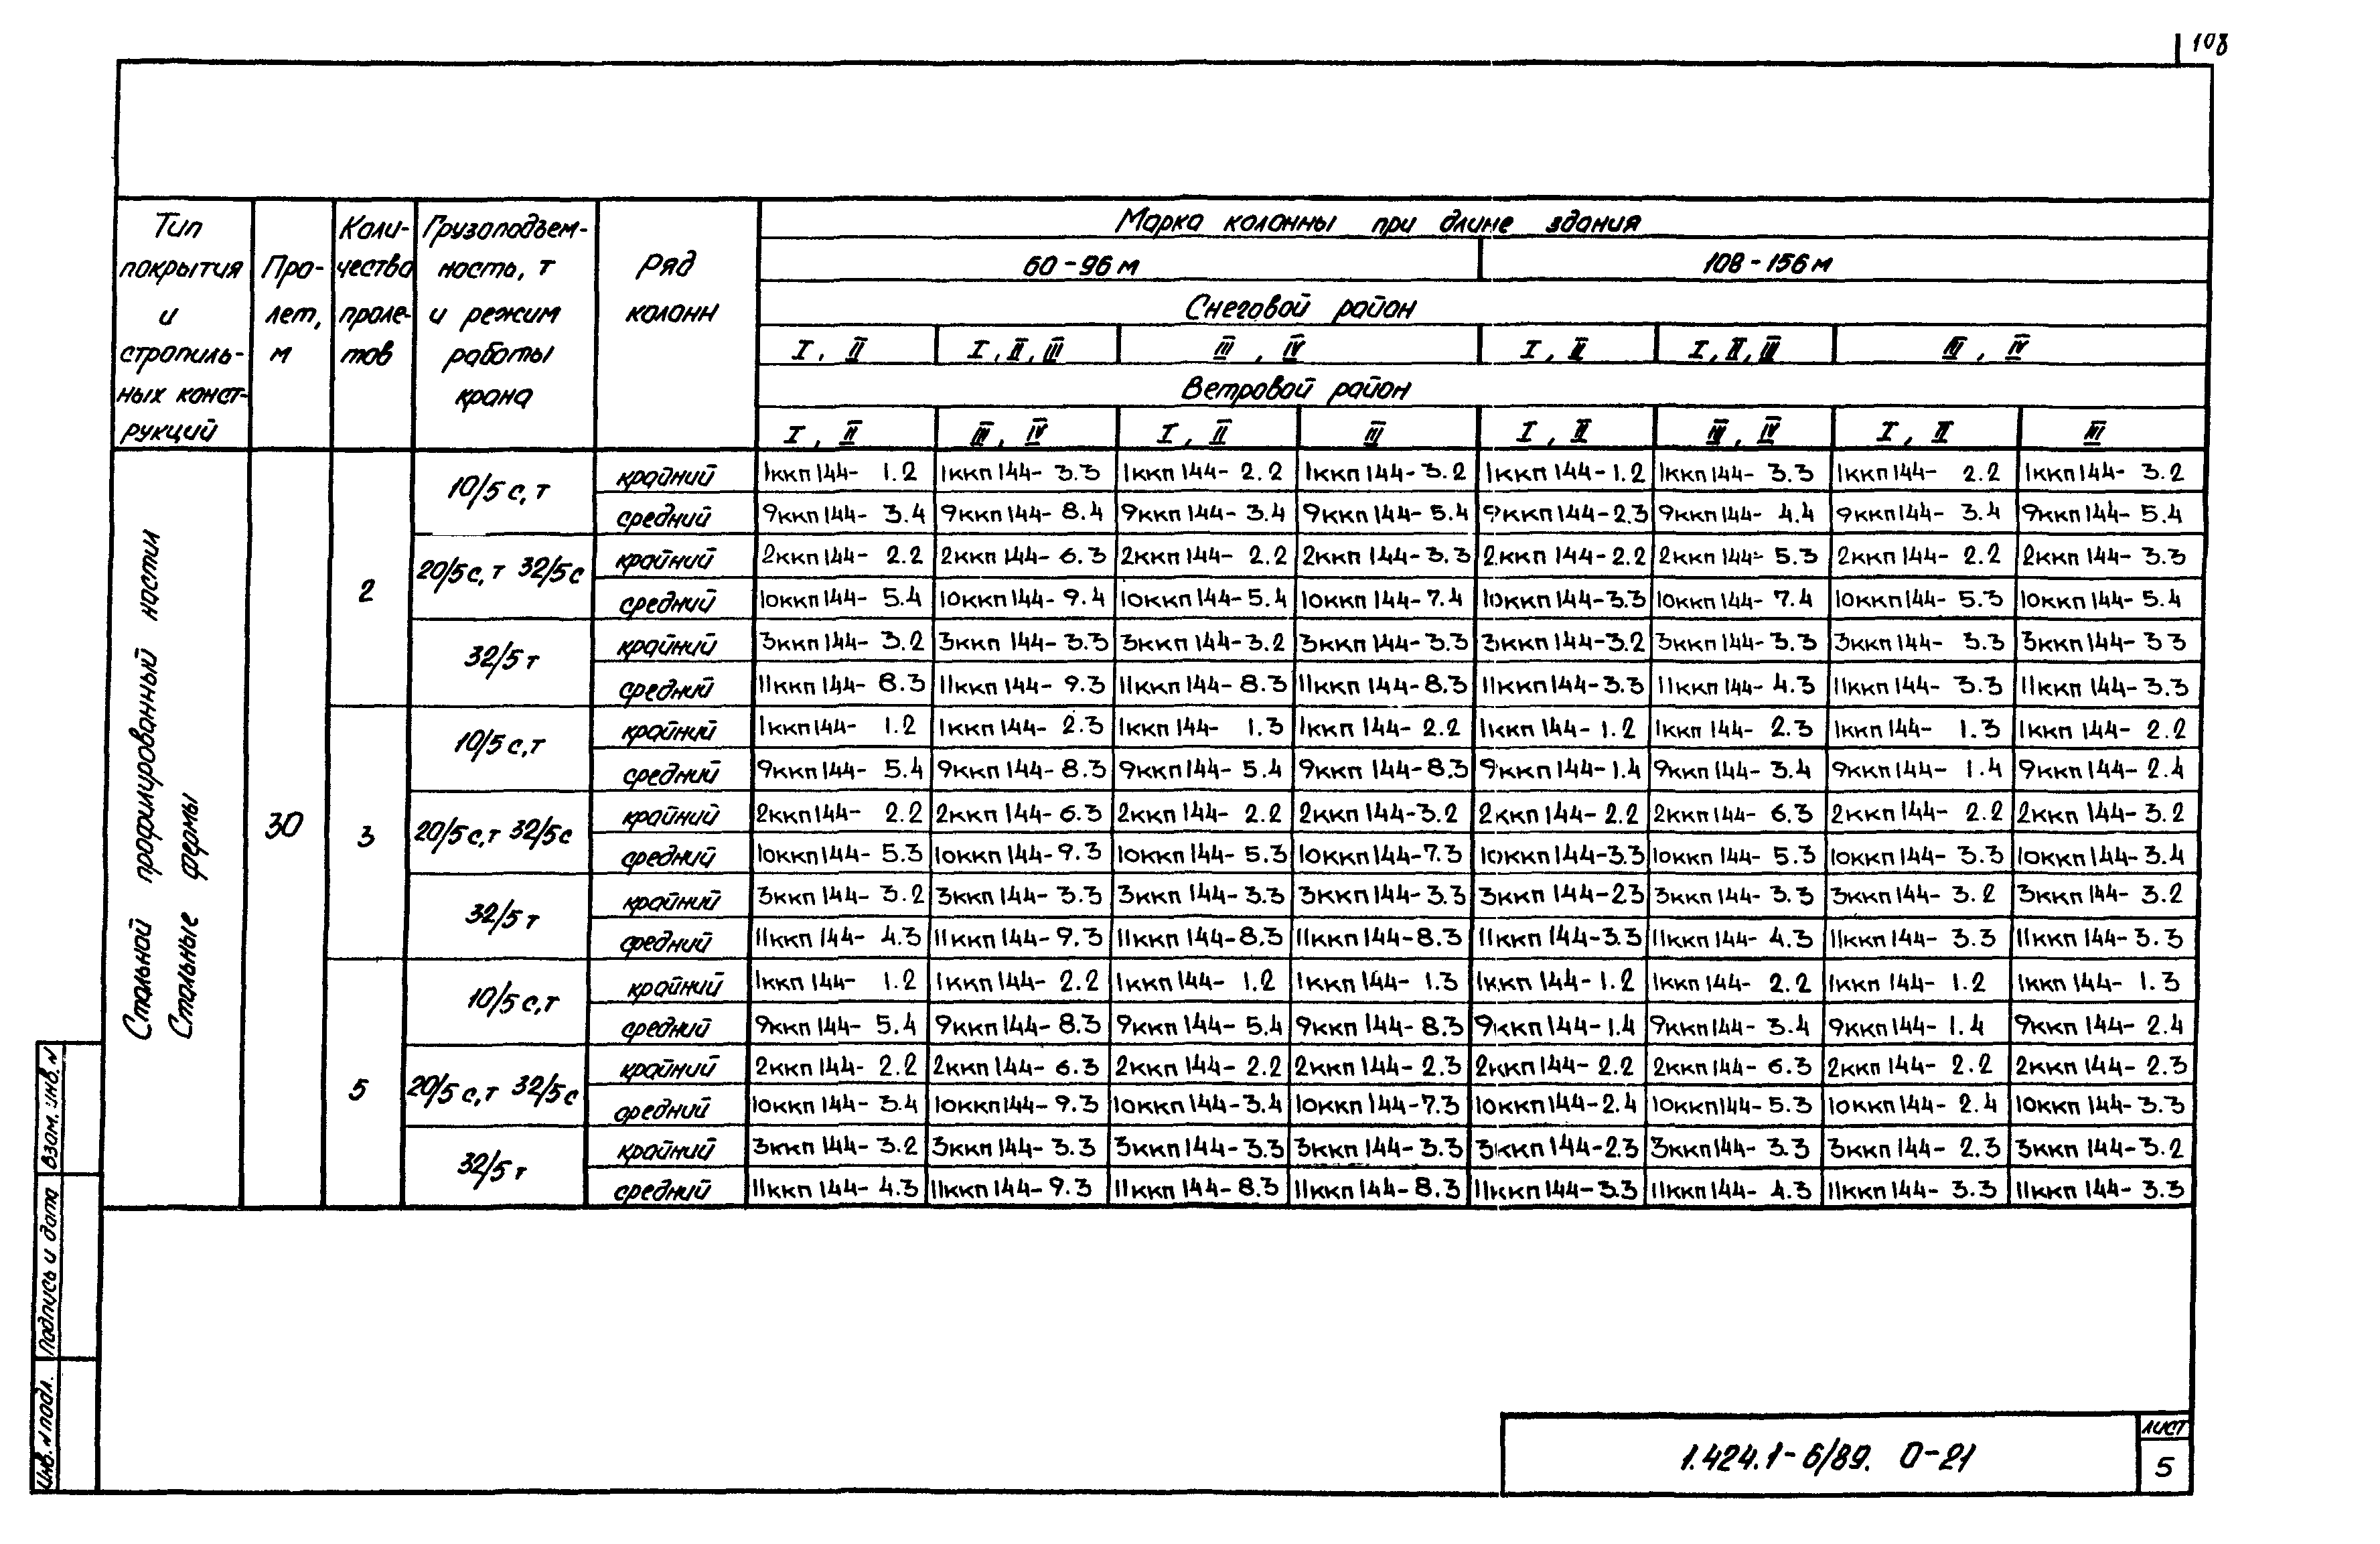 108
Тип покрытия и стропиль- ных конст- рукций
Про- лет, м
Коли- чество проле- тов
Грузоподъем- ность, т и режим работы крана
Ряд колонн
Марка колонны при длине здания
60-96 м 108-156 м
Снеговой район
I, II I, II, III III, IV I, II I, II, III III, IV
Ветровой район
I, II III, IV I, II III I, II III, IV I, II III
Стальной профилированный настил
Стальные фермы
30
2
10/5 с, т
крайний 1ккп144- 1.2 1ккп144- 3.3 1ккп144- 2.2 1ккп144-3.2 1ккп144-1.2 1ккп144- 3.3 1ккп144- 2.2 1ккп144- 3.2
средний 9ккп144- 3.4 9ккп144- 8.4 9ккп144- 3.4 9ккп144- 5.4 9ккп144-2.3 9ккп144- 4.4 9ккп144- 3.4 9ккп144- 5.4
20/5с, т 32/5с
крайний 2ккп144- 2.2 2ккп144- 6.3 2ккп144- 2.2 2ккп144-3.3 2ккп144-2.2 2ккп144- 5.3 2ккп144- 2.2 2ккп144- 3.3
средний 10ккп144- 5.4 10ккп144- 9.4 10ккп144-5.4 10ккп144-7.4 10ккп144-3.3 10ккп144- 7.4 10ккп144- 5.3 10ккп144- 5.4
32/5 т
крайний 3ккп144- 3.2 3ккп144- 3.3 3ккп144-3.2 3ккп144-3.3 3ккп144-3.2 3ккп144-3.3 3ккп144- 3.3 3ккп144- 3 3
средний 11ккп144- 8.3 11ккп144- 9.3 11ккп144-8.3 11ккп144-8.3 11ккп144-3.3 11ккп144- 4.3 11ккп144- 3.3 11ккп144-3.3
3
10/5 с,т
крайний 1ккп144- 1.2 1ккп144- 2.3 1ккп144- 1.3 1ккп144- 2.2 1ккп144- 1.2 1ккп144- 2.3 1ккп144- 1.3 1ккп144- 2.2
средний 9ккп144- 5.4 9ккп144-8.3 9ккп144- 5.4 9ккп144-8.3 9ккп144-1.4 9ккп144- 3.4 9ккп144- 1.4 9ккп144- 2.4
20/5 с,т 32/5с
крайний 2ккп144- 2.2 2ккп144- 6.3 2ккп144- 2.2 2ккп144-3.2 2ккп144- 2.2 2ккп144- 6.3 2ккп144- 2.2 2ккп144- 3.2
средний 10ккп144- 5.3 10ккп144-9.3 10ккп144- 5.3 10ккп144-7.3 10ккп144-3.3 10ккп144- 5.3 10ккп144- 3.3 10ккп144-3.4
32/5 т
крайний 3ккп144- 3.2 3ккп144- 3.3 3ккп144- 3.3 3ккп144-3.3 3ккп144-23 3ккп144- 3.3 3ккп144- 3.2 3ккп144- 3.2
средний 11ккп144- 4.3 11ккп144-9.3 11ккп144-8.3 11ккп144-8.3 11ккп144-3.3 11ккп144- 4.3 11ккп144- 3.3 11ккп144-3.3
5
10/5 с,т
крайний 1ккп144- 1.2 1ккп144- 2.2 1ккп144- 1.2 1ккп144- 1.3 1ккп144- 1.2 1ккп144- 2.2 1ккп144- 1.2 1ккп144- 1.3
средний 9ккп144- 5.4 9ккп144- 8.3 9ккп144- 5.4 9ккп144- 8.3 9ккп144-1.4 9ккп144- 3.4 9ккп144- 1.4 9ккп144- 2.4
20/5 с,т 32/5с
крайний 2ккп144- 2.2 2ккп144- 6.3 2ккп144- 2.2 2ккп144- 2.3 2ккп144- 2.2 2ккп144- 6.3 2ккп144- 2.2 2ккп144- 2.3
средний 10ккп144- 3.4 10ккп144- 9.3 10ккп144-3.4 10ккп144-7.3 10ккп144-2.4 10ккп144-5.3 10ккп144- 2.4 10ккп144- 3.3
32/5 т
крайний 3ккп144- 3.2 3ккп144- 3.3 3ккп144- 3.3 3ккп144- 3.3 3ккп144-2.3 3ккп144- 3.3 3ккп144- 2.3 3ккп144-3.2
средний 11ккп144- 4.3 11ккп144-9.3 11ккп144-8.3 11ккп144-8.3 11ккп144-3.3 11ккп144- 4.3 11ккп144- 3.3 11ккп144- 3.3
Взам. инв. N
Подпись и дата
Инв. N подл.
1.424.1-6/89. 0-21
лист
5